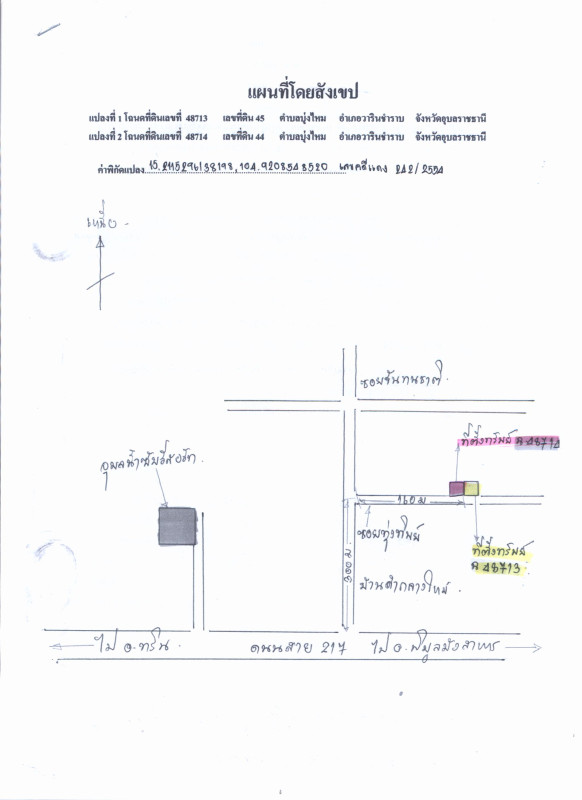 แผนที่โดยสังเขป
แปลงที่ 1 โฉนดที่ดินเลขที่ 48713 เลขที่ดิน 45 ตำบลบุ่งไหม อำเภอวารินชำราบ จังหวัดอุบลราชธานี
แปลงที่ 2 โฉนดที่ดินเลขที่ 48714 เลขที่ดิน 44 ตำบลบุ่งไหม อำเภอวารินชำราบ จังหวัดอุบลราชธานี
ค่าพิกัดแปลง 15.2115296138198, 104.9208548520 เลขคดีแดง 242/2554
เหนือ
ซอยจันทนชาติ
ที่ตั้งทรัพย์ ฉ 48714
160 ม
ซอยทุ่งทิพย์
ที่ตั้งทรัพย์
ฉ 48713
300 ม.
บ้านคำกลางใหม่
ไป อ.วาริน
ถนนสาย 217
ไป อ.พิบูลมังสาหาร